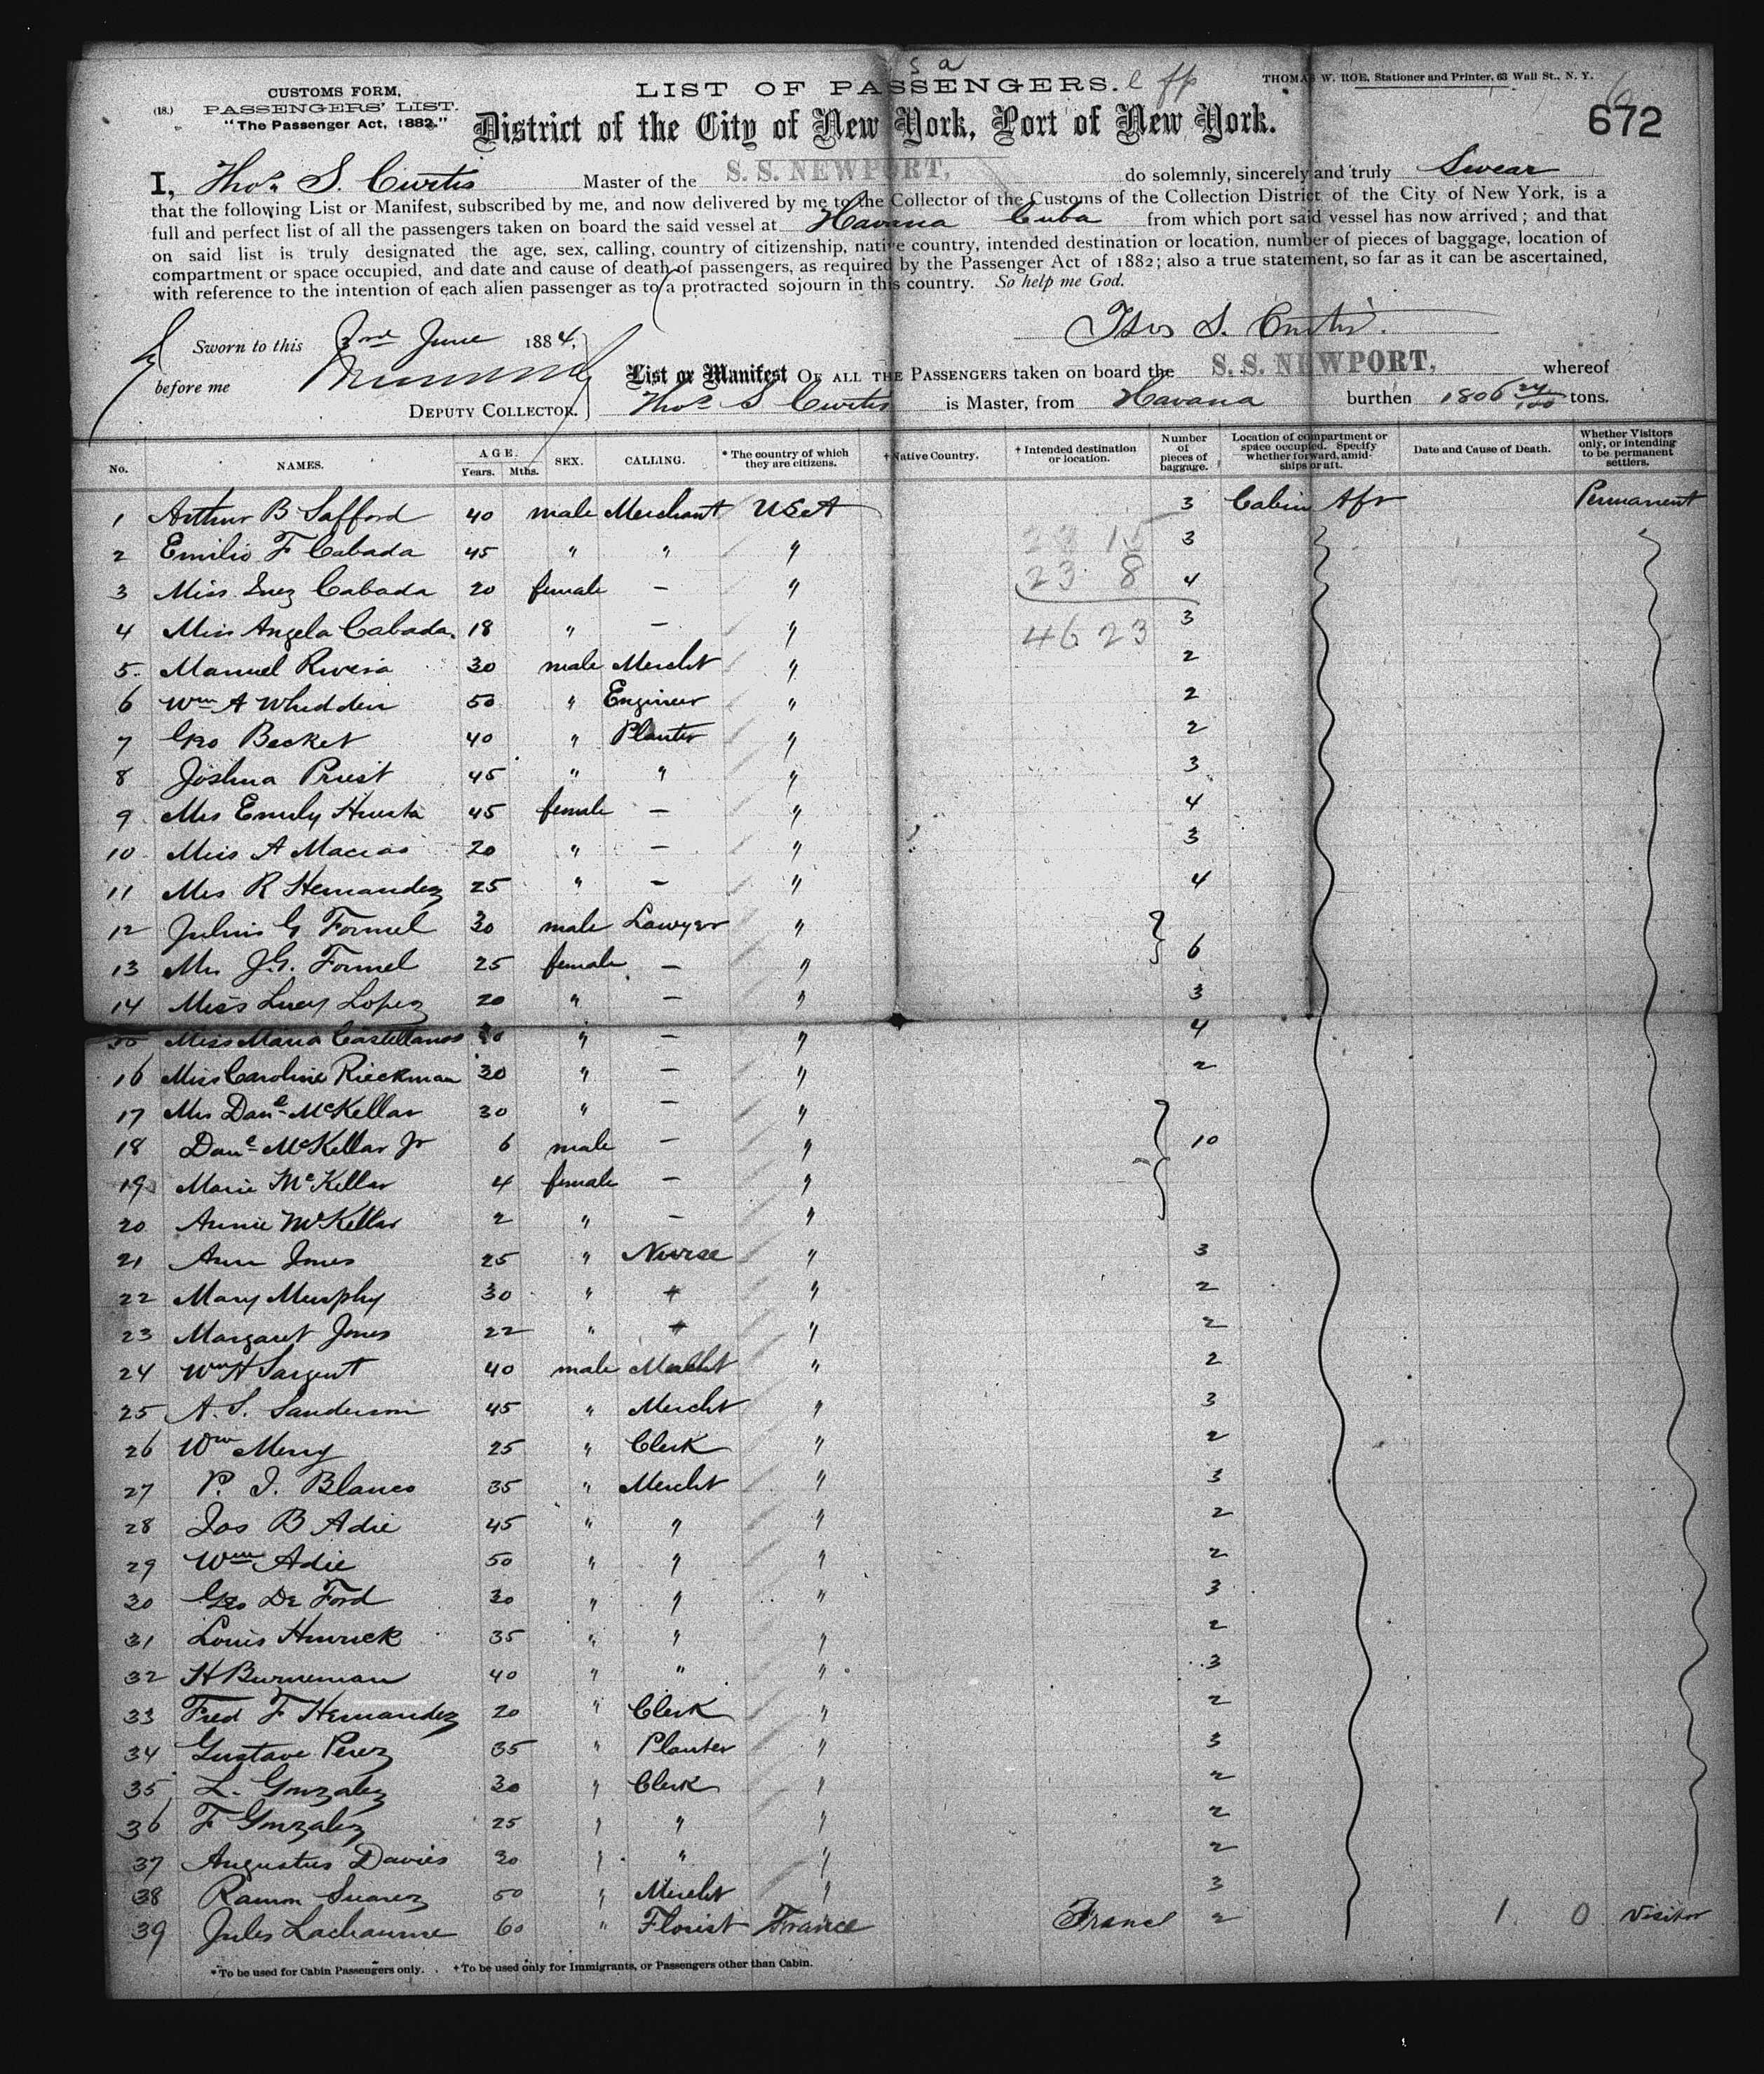 s a
CUSTOMS FORM,
(18.) PASSENGERS' LIST.
"The Passenger Act, 1882."
LIST OF PASSENGERS.
THOMAS W. ROE, Stationer and Printer, 63 Wall St., N. Y.
672
District of the City of New York, Port of New York.
I, Thos. S. Curtis Master of the S. S. NEWPORT, do solemnly, sincerely and truly Swear
that the following List or Manifest, subscribed by me, and now delivered by me to the Collector of the Customs of the Collection District of the City of New York, is a
full and perfect list of all the passengers taken on board the said vessel at Havana Cuba from which port said vessel has now arrived; and that
on said list is truly designated the age, sex, calling, country of citizenship, native country, intended destination or location, number of pieces of baggage, location of
compartment or space occupied, and date and cause of death of passengers, as required by the Passenger Act of 1882; also a true statement, so far as it can be ascertained,
with reference to the intention of each alien passenger as to a protracted sojourn in this country. So help me God.
Thos S. Curtis.
Sworn to this 3rd June 1884,
before me
DEPUTY COLLECTOR.
List or Manifest OF ALL THE PASSENGERS taken on board the S. S. NEWPORT, whereof
Thos S Curtis is Master, from Havana burthen 1806 24/100 tons.
No. NAMES. AGE. Years. Mths. SEX. CALLING. * The country of which they are citizens. † Native Country. † Intended destination or location. Number of pieces of baggage. Location of compartment or space occupied. Specify whether forward, amidships or aft. Date and Cause of Death. Whether Visitors only, or intending to be permanent settlers.
1 Arthur B Safford 40 male Merchant USA 3 Cabin Aft Permanent
2 Emilio F Cabada 45 " " " 3
3 Miss Inez Cabada 20 female — " 23 8 4
4 Miss Angela Cabada. 18 " — " 46 23 3
5. Manuel Rivera 30 male Mercht " 2
6 Wm A Whidden 50 " Engineer " 2
7 Geo Becket 40 " Planter " 2
8 Joshua Priest 45 " " " 3
9 Mrs Emily Huesta 45 female — " 4
10 Miss A Macias 20 " — " 3
11 Mrs R Hernandez 25 " — " 4
12 Julius G Formel 30 male Lawyer "
13 Mrs J.G. Formel 25 female — " 6
14 Miss Lucy Lopez 20 " — " 3
15 Miss Maria Castellanos " — " 4
16 Miss Caroline Rieckman 30 " — " 2
17 Mrs Danl McKellar 30 " — "
18 Danl McKellar Jr 6 male — " 10
19 Marie McKellar 4 female — "
20 Annie McKellar 2 " — "
21 Ann Jones 25 " Nurse " 3
22 Mary Murphy 30 " " " 2
23 Margaret Jones 22 " " " 2
24 Wm H Sargent 40 male Mercht " 2
25 A. S. Sanderson 45 " Mercht " 3
26 Wm Merry 25 " Clerk " 2
27 P. J. Blanco 35 " Mercht " 3
28 Jos B Adie 45 " " " 2
29 Wm Adie 50 " " " 2
30 Geo De Ford 30 " " " 3
31 Louis 35 " " " 2
32 H Burneman 40 " " " 3
33 Fred F Hernandez 20 " Clerk " 2
34 Gustave Perez 35 " Planter " 3
35 L. Gonzalez 30 " Clerk " 2
36 F Gonzalez 25 " " " 2
37 Augustus Davies 30 " " " 2
38 Ramon Suarez 50 " Mercht " 3
39 Jules Lachaume 60 " Florist France France 2 1 0 Visitor
* To be used for Cabin Passengers only. † To be used only for Immigrants, or Passengers other than Cabin.